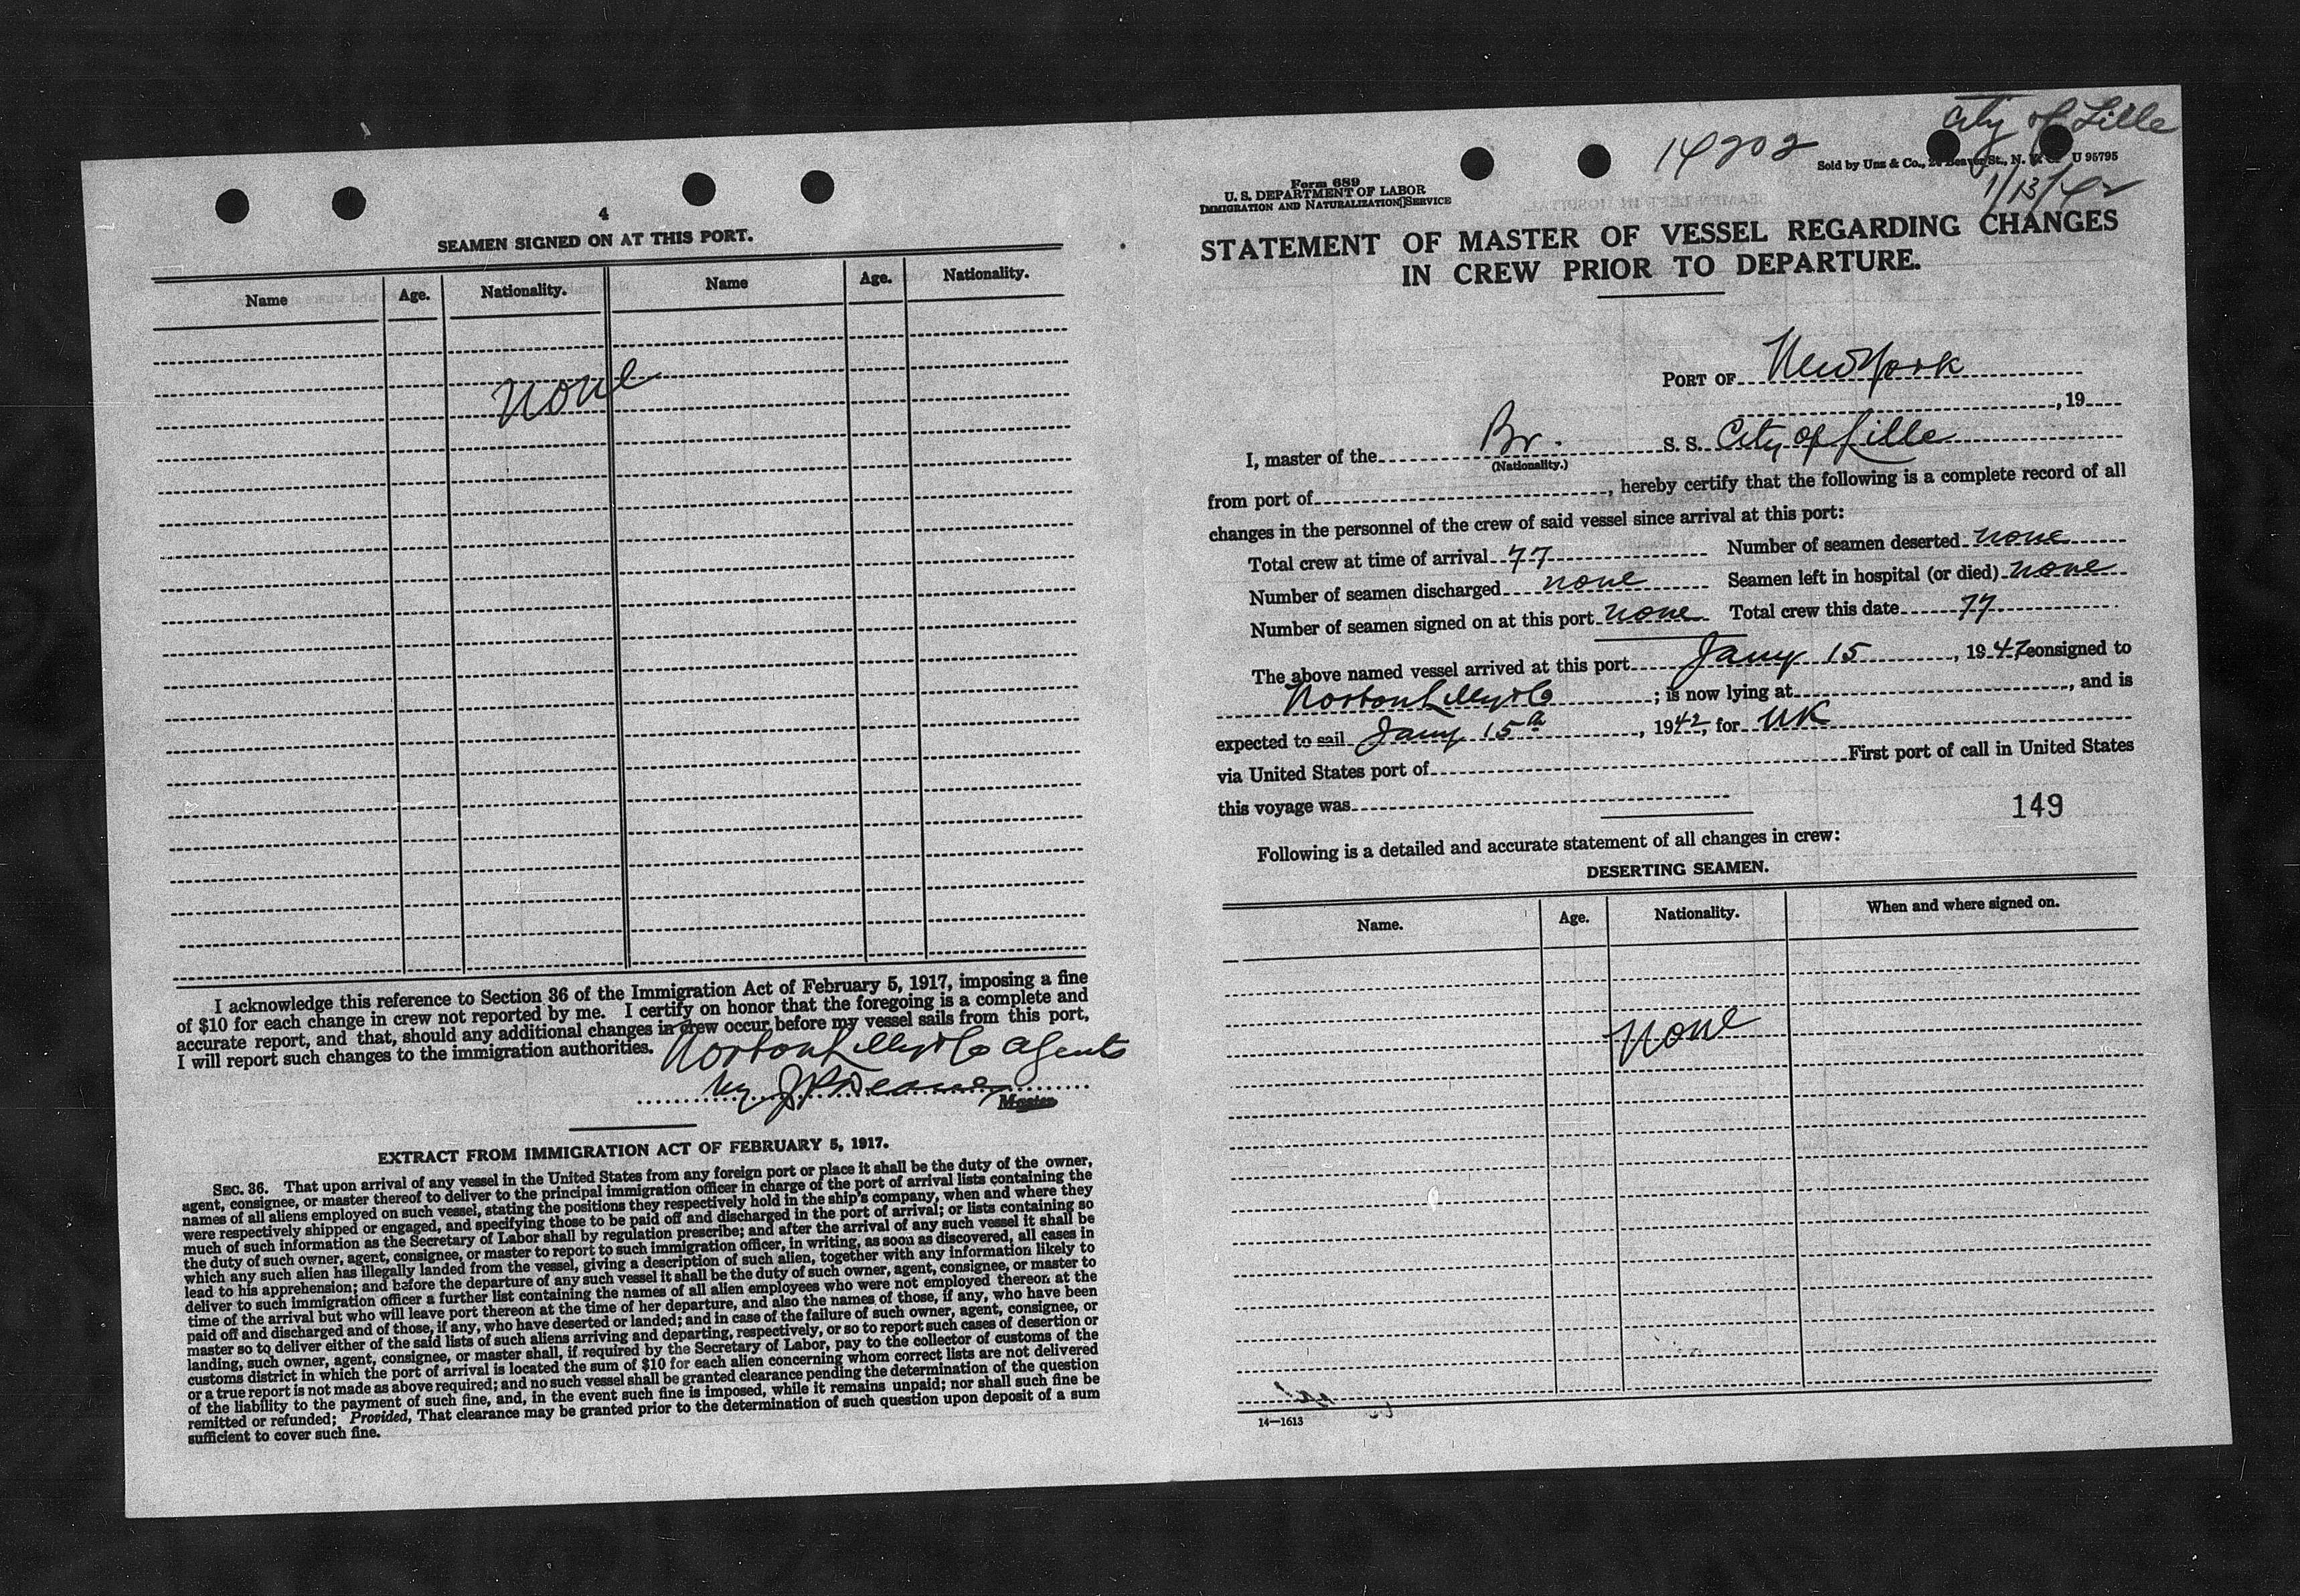 4
SEAMEN SIGNED ON AT THIS PORT.
Name Age. Nationality. Name Age. Nationality.
none
I acknowledge this reference to Section 36 of the Immigration Act of February 5, 1917, imposing a fine
of $10 for each change in crew not reported by me. I certify on honor that the foregoing is a complete and
accurate report, and that, should any additional changes in crew occur before my vessel sails from this port,
I will report such changes to the immigration authorities.
Norton Lilly & Co Agents
by
Master
EXTRACT FROM IMMIGRATION ACT OF FEBRUARY 5, 1917.
SEC. 36. That upon arrival of any vessel in the United States from any foreign port or place it shall be the duty of the owner,
agent, consignee, or master thereof to deliver to the principal immigration officer in charge of the port of arrival lists containing the
names of all aliens employed on such vessel, stating the positions they respectively hold in the ship's company, when and where they
were respectively shipped or engaged, and specifying those to be paid off and discharged in the port of arrival; or lists containing so
much of such information as the Secretary of Labor shall by regulation prescribe; and after the arrival of any such vessel it shall be
the duty of such owner, agent, consignee, or master to report to such immigration officer, in writing, as soon as discovered, all cases in
which any such alien has illegally landed from the vessel, giving a description of such alien, together with any information likely to
lead to his apprehension; and before the departure of any such vessel it shall be the duty of such owner, agent, consignee, or master to
deliver to such immigration officer a further list containing the names of all alien employees who were not employed thereon at the
time of the arrival but who will leave port thereon at the time of her departure, and also the names of those, if any, who have been
paid off and discharged and of those, if any, who have deserted or landed; and in case of the failure of such owner, agent, consignee, or
master so to deliver either of the said lists of such aliens arriving and departing, respectively, or so to report such cases of desertion or
landing, such owner, agent, consignee, or master shall, if required by the Secretary of Labor, pay to the collector of customs of the
customs district in which the port of arrival is located the sum of $10 for each alien concerning whom correct lists are not delivered
or a true report is not made as above required; and no such vessel shall be granted clearance pending the determination of the question
of the liability to the payment of such fine, and, in the event such fine is imposed, while it remains unpaid; nor shall such fine be
remitted or refunded; Provided, That clearance may be granted prior to the determination of such question upon deposit of a sum
sufficient to cover such fine.
City of Lille
14202
Sold by Unz & Co., Beaver St., N. Y. U 95795
1/13/42
Form 689
U. S. DEPARTMENT OF LABOR
IMMIGRATION AND NATURALIZATION SERVICE
STATEMENT OF MASTER OF VESSEL REGARDING CHANGES
IN CREW PRIOR TO DEPARTURE.
PORT OF New York
, 19
I, master of the Br. S. S. City of Lille
(Nationality.)
from port of , hereby certify that the following is a complete record of all
changes in the personnel of the crew of said vessel since arrival at this port:
Total crew at time of arrival 77 Number of seamen deserted none
Number of seamen discharged none Seamen left in hospital (or died) none
Number of seamen signed on at this port none Total crew this date 77
The above named vessel arrived at this port Jany 15 , 1942 consigned to
Norton Lilly & Co ; is now lying at , and is
expected to sail Jany 15 , 1942, for UK
via United States port of First port of call in United States
this voyage was
149
Following is a detailed and accurate statement of all changes in crew:
DESERTING SEAMEN.
Name. Age. Nationality. When and where signed on.
None
14—1613